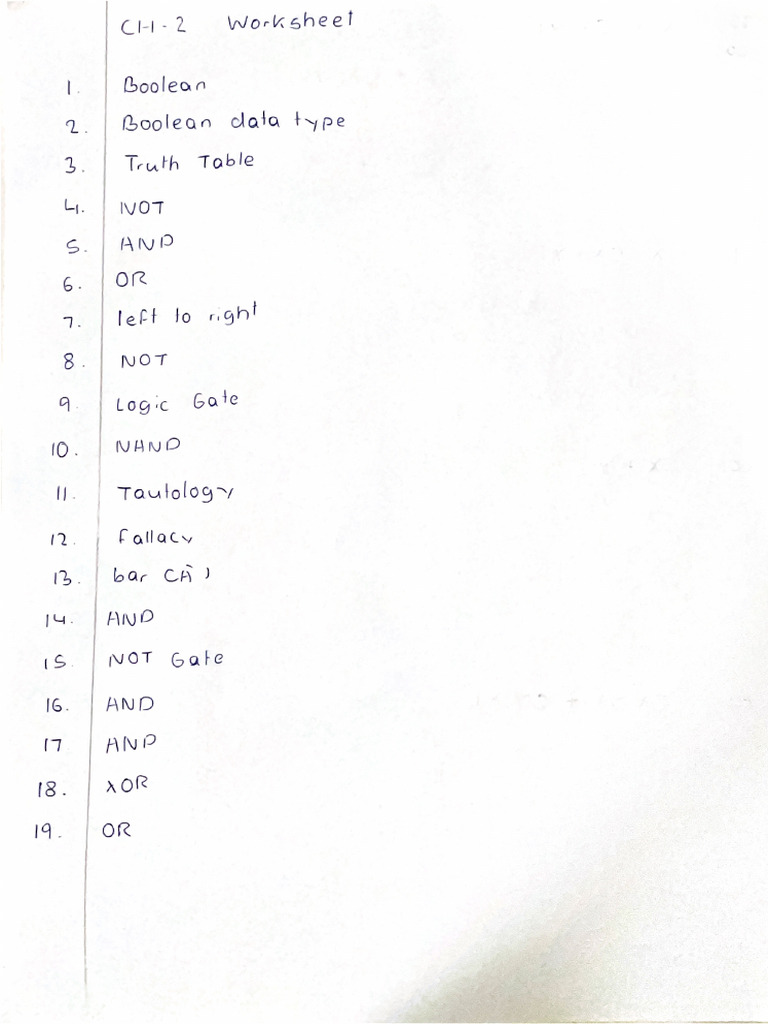 CH-2 Worksheet
1. Boolean
2. Boolean data type
3. Truth Table
4. NOT
5. AND
6. OR
7. left to right
8. NOT
9. Logic Gate
10. NAND
11. Tautology
12. fallacy
13. bar (Ā)
14. AND
15. NOT Gate
16. AND
17 AND
18. XOR
19. OR